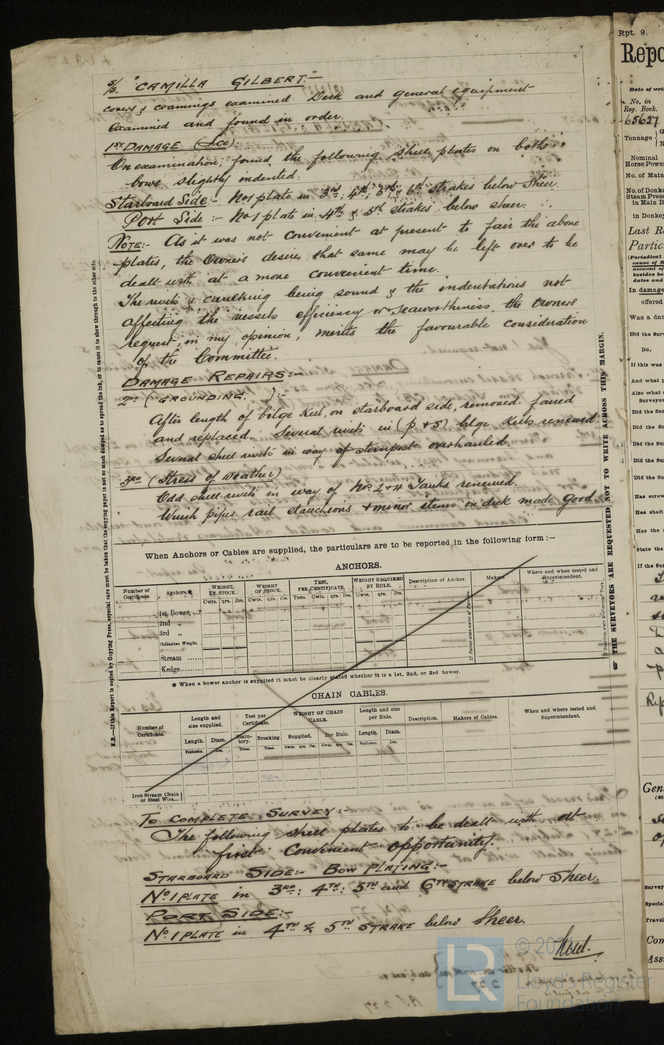 S/S. "CAMILLA GILBERT."
covers & coamings examined Deck and general equipment
examined and found in order.
1st DAMAGE (Ice)
On examination, found the following shell plates on both
bows slightly indented:
Starboard Side:- No1 plate in 3rd, 4th, 5th, 6th strakes below sheer.
Port Side:- No1 plate in 4th & 5th strakes below sheer.
NOTE:- As it was not convenient at present to fair the above
plates, the Owners desire that same may be left over to be
dealt with at a more convenient time.
The rivets & caulking being sound & the indentations not
affecting the vessels efficiency or seaworthiness, the Owners
request, in my opinion, merits the favourable consideration
of the Committee.
DAMAGE REPAIRS:-
2nd (GROUNDING. ):-
After length of bilge keel, on starboard side, removed, faired
and replaced. Several rivets in (p & s) bilge keels renewed.
Several shell rivets in way of sternpost overhauled.
3rd (Stress of Weather)
Odd shell rivets in way of Nos 2 & 4 Tanks renewed.
Winch pipes rail stanchions & minor items on deck made good.
When Anchors or Cables are supplied, the particulars are to be reported in the following form :—
ANCHORS.
Number of Certificate. Anchors. WEIGHT, EX. STOCK. WEIGHT OF STOCK. TEST, PER CERTIFICATE. WEIGHT REQUIRED BY RULE. Description of Anchor. Makers. Where and when tested and Superintendent.
Cwts. qrs. lbs. Cwts. qrs. lbs. Tons. Cwts. qrs. lbs. Cwts. qrs. lbs.
1st Bower
2nd „
3rd „
Collective Weight.
Stream
Kedge
* When a bower anchor is supplied it must be clearly stated whether it is a 1st, 2nd, or 3rd bower.
CHAIN CABLES.
Number of Certificate. Length and size supplied. Test per Certificate. WEIGHT OF CHAIN CABLE. Length and size per Rule. Description. Makers of Cables. When and where tested and Superintendent.
Length. Diam. Statutory. Breaking Supplied. Per Rule. Length. Diam.
Fathoms. Tons. Tons. Cwts. qrs. lbs. Cwts. qrs. lbs. Fathoms
Iron Stream Chain or Steel Wire...
TO COMPLETE SURVEY:-
The following shell plates to be dealt with at
first convenient opportunity.
STARBOARD SIDE:- BOW PLATING:-
No1 PLATE in 3RD; 4TH; 5TH and 6TH STRAKE below Sheer.
PORT SIDE:-
No1 PLATE in 4TH & 5TH STRAKE below Sheer.
N.B.—If this Report is copied by Copying Press, especial care must be taken that the copying paper is not so much damped as to spread the ink, or to cause it to show through to the other side.
THE SURVEYORS ARE REQUESTED NOT TO WRITE ACROSS THIS MARGIN.
LR
Lloyd's Register
Foundation
Rpt. 9.
Repo
No. in
Reg. Book.
65627
Tonnage
Nominal
Horse Power
No. of Main
Last R
Partic
In damage
offered
Was a dam
Did the Surv
Do.
If this was
And what p
Also what
Surveyor
Did the Su
Did the Su
Did the Su
Did the Su
Has screw
Has shaft
Has the
State the
If the Sur
Gen
Survey
Special
Travel
Com
Ass